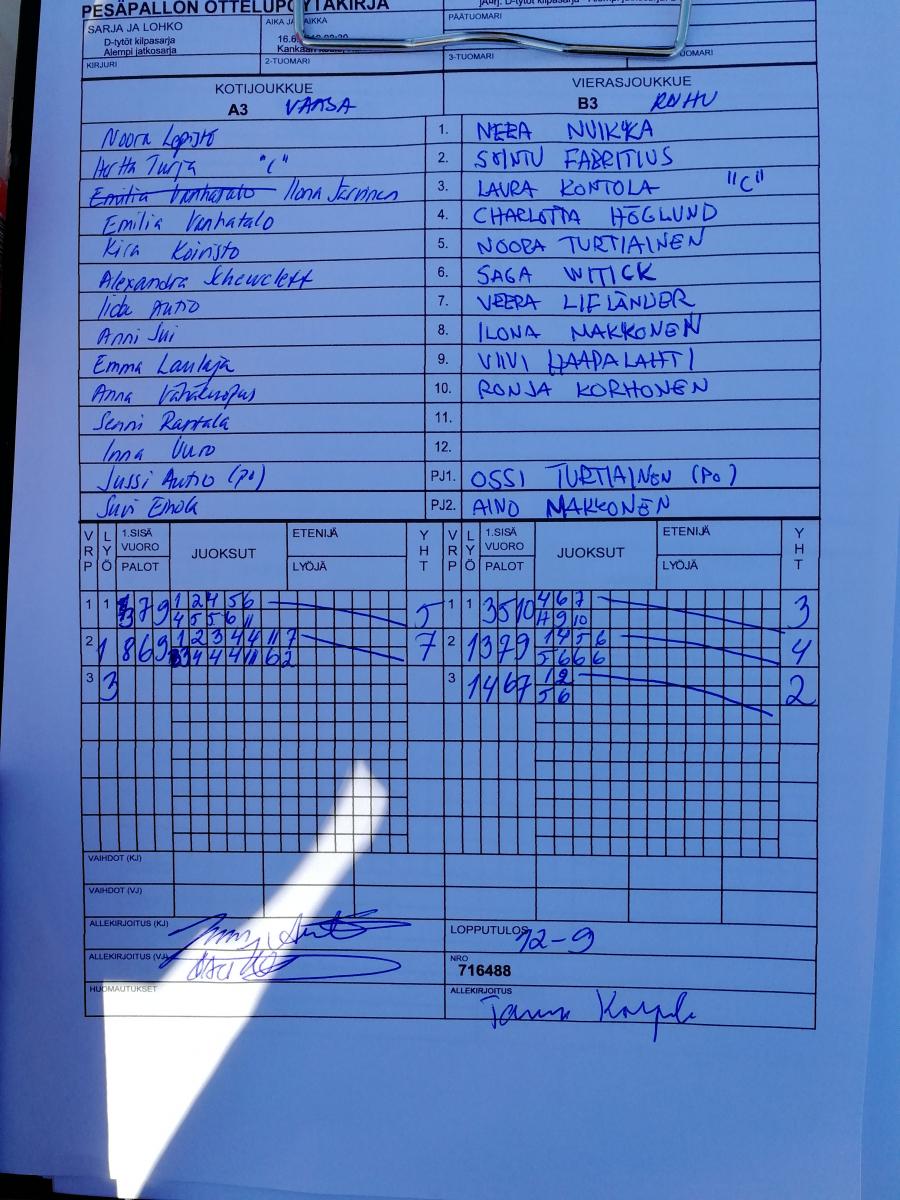 PESÄPALLON OTTELUPÖYTÄKIRJA
SARJA JA LOHKO
D-tytöt kilpasarja
Alempi jatkosarja
KIRJURI
AIKA JA
2-TUOMARI
PÄÄTUOMARI
3-TUOMARI
TUOMARI
KOTIJOUKKUE
A3 VAASA
VIERASJOUKKUE
B3 ROHU
Noora Lepistö 1. NEEA NUIKKA
Hertta Turja "C" 2. SOINTU FABRITIUS
Emilia Vanhatalo Ilona Järvinen 3. LAURA KONTOLA "C"
Emilia Vanhatalo 4. CHARLOTTA HÖGLUND
Kira Koivisto 5. NOORA TURTIAINEN
Alexandra 6. SAGA WITICK
Iida Autio 7. VEERA LIELÄNDER
Anni Sui 8. ILONA MAKKONEN
Emma Laulaja 9. VIIVI HAAPALAHTI
Anna Vähäkuopus 10. RONJA KORHONEN
Senni Rantala 11.
Inna Vuro 12.
Jussi Autio (po) PJ1. OSSI TURTIAINEN (Po)
Suvi PJ2. AINO MAKKONEN
VRP LYÖ 1.SISÄ VUORO PALOT JUOKSUT ETENIJÄ LYÖJÄ YHT VRP LYÖ 1.SISÄ VUORO PALOT JUOKSUT ETENIJÄ LYÖJÄ YHT
1 1 3 7 9 1 2 4 5 6 5 1 1 3 5 10 4 6 7 3
4 5 5 6 11 9 10
2 1 8 6 9 1 2 3 4 4 11 7 7 2 1 3 7 9 1 4 5 6 4
3 4 4 4 11 6 2 5 6 6 6
3 3 3 1 4 6 7 1 2 2
5 6
VAIHDOT (KJ)
VAIHDOT (VJ)
ALLEKIRJOITUS (KJ)
LOPPUTULOS 12-9
ALLEKIRJOITUS (VJ)
NRO
716488
HUOMAUTUKSET
ALLEKIRJOITUS